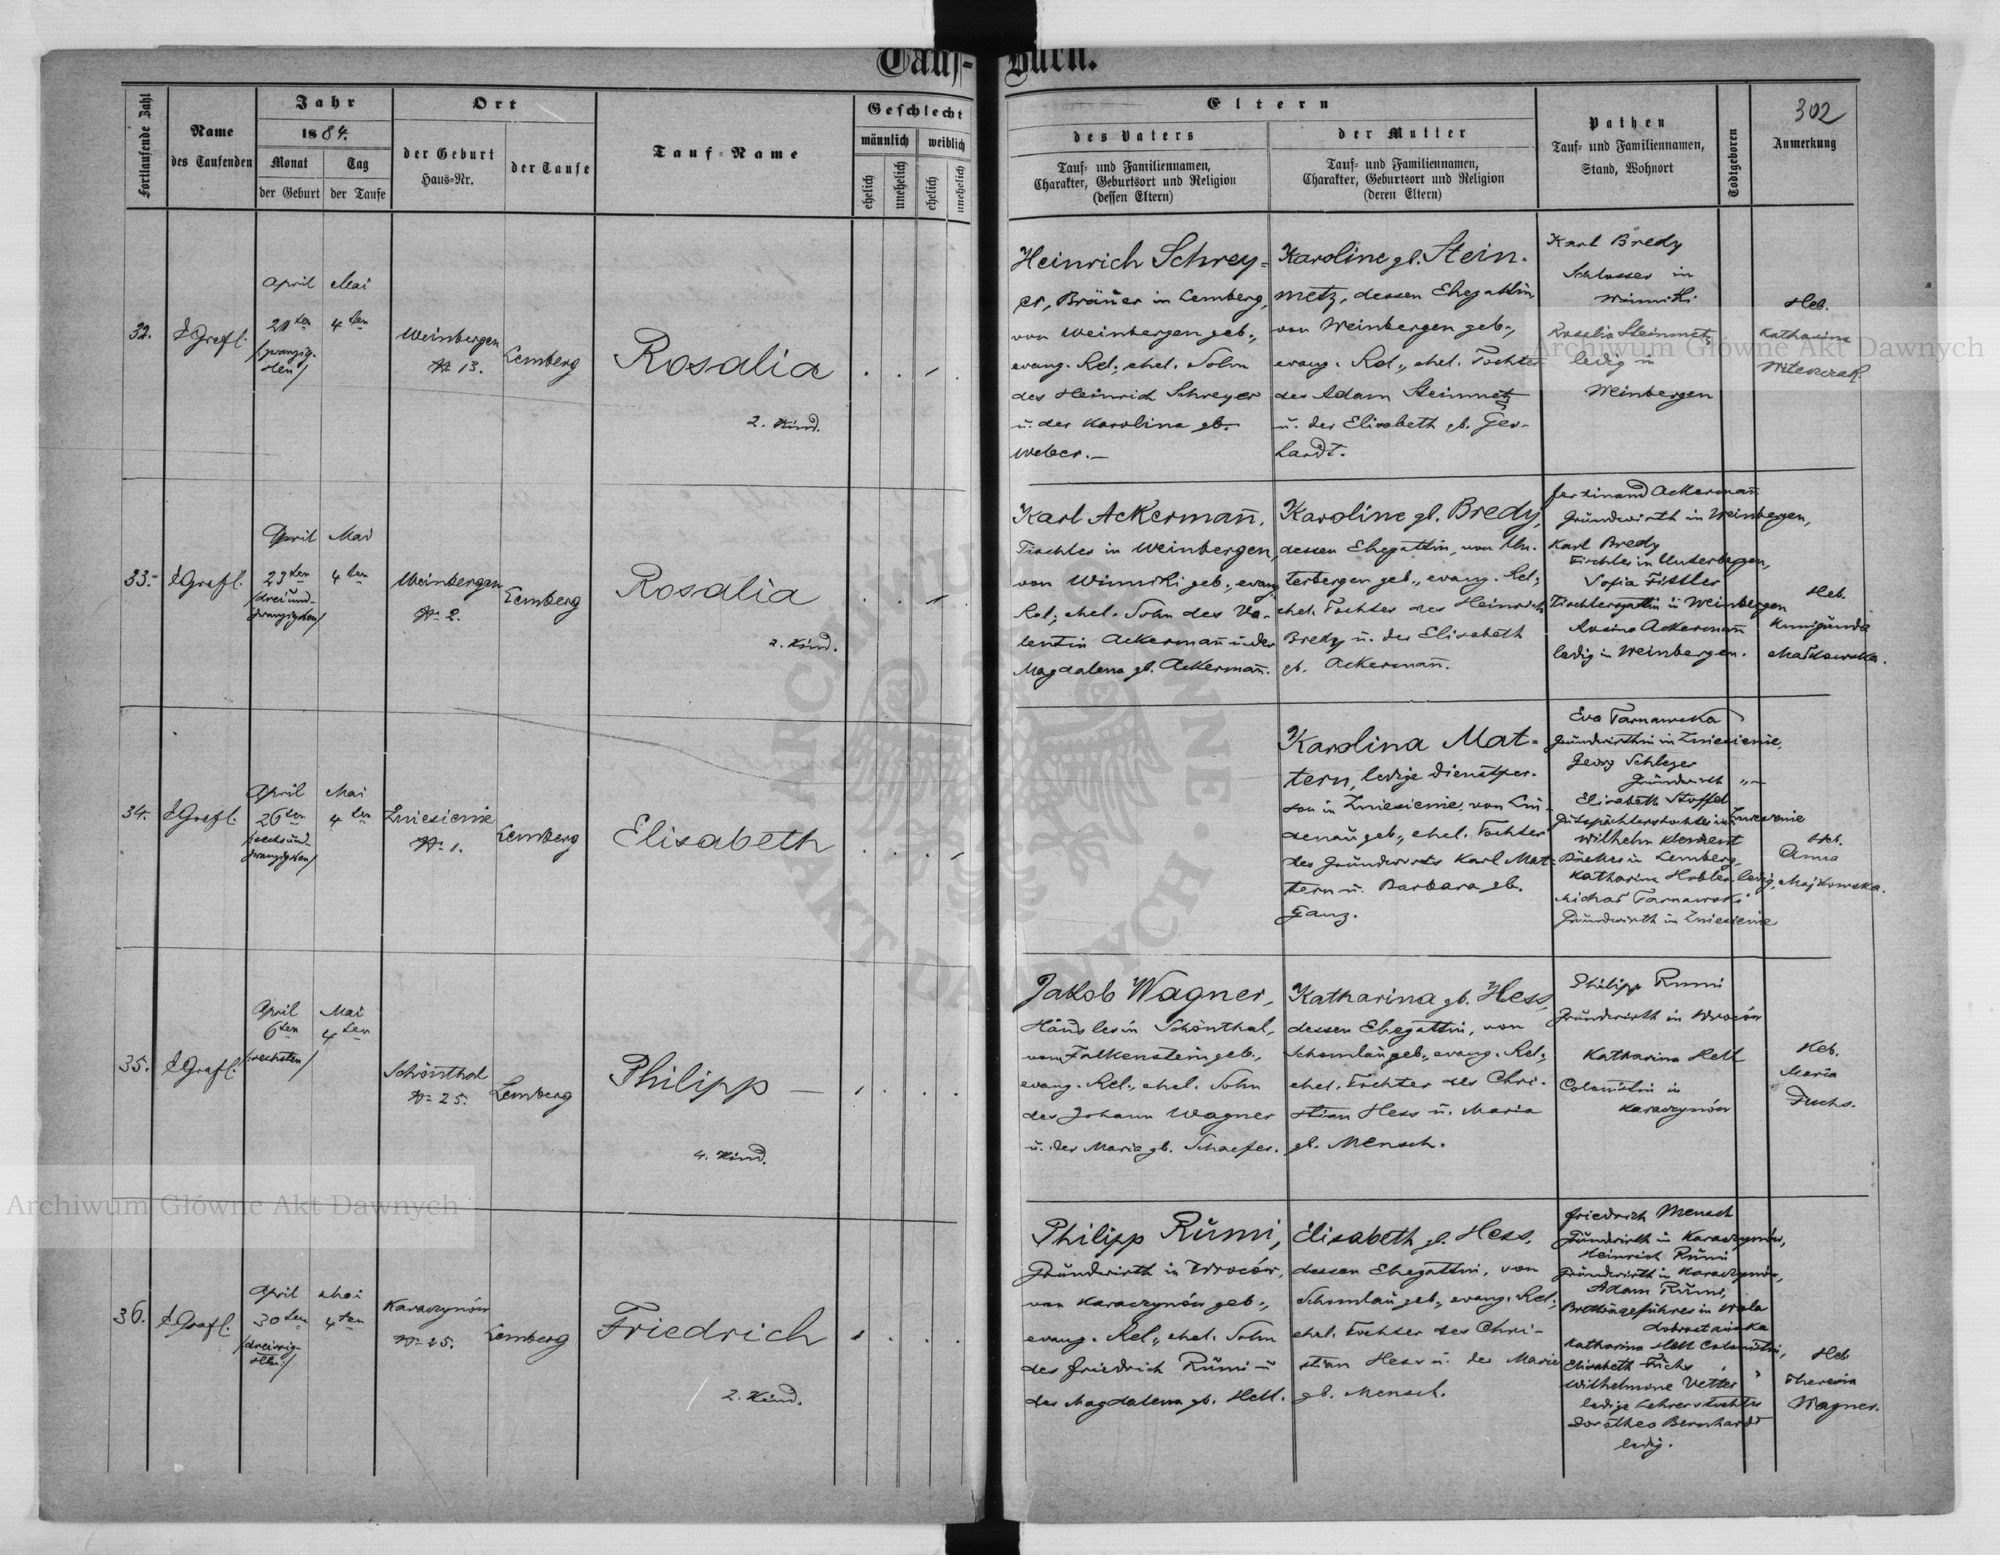 Tauf-Buch.
302
Fortlaufende Zahl
Name
des Taufenden
Jahr
1884.
Monat
der Geburt
Tag
der Taufe
Ort
der Geburt
Haus-Nr.
der Taufe
Tauf-Name
Geschlecht
männlich
weiblich
ehelich
unehelich
ehelich
unehelich
Eltern
des Vaters
Tauf- und Familiennamen,
Charakter, Geburtsort und Religion
(dessen Eltern)
der Mutter
Tauf- und Familiennamen,
Charakter, Geburtsort und Religion
(deren Eltern)
Pathen
Tauf- und Familiennamen,
Stand, Wohnort
Todtgeboren
Anmerkung
32.
Grafl.
April
/zwanzig-
sten/
Mai
4ten
Weinbergen
Nr 13.
Lemberg
Rosalia
2. Kind.
Heinrich Schrey-
er, Bräuer in Lemberg,
von Weinbergen geb.,
evang. Rel., ehel. Sohn
des Heinrich Schreyer
u. der Karolina gb.
Weber.—
Karoline gb. Stein-
metz, dessen Ehegattin,
von Weinbergen geb.,
evang. Rel., ehel. Tochter
des Adam Steinmetz
u. der Elisabeth gb. Ger-
hardt.
Karl Bredy
Schlosser in
Winniki
Rosalia Steinmetz
ledig in
Weinbergen
Heb.
Katharina
Witeszczak.
33.
Grafl.
April
23ten
/dreiund-
zwanzigsten/
Mai
4ten
Weinbergen
Nr 2.
Lemberg
Rosalia
2. Kind.
Karl Ackermann,
Tischler in Weinbergen,
von Winniki geb., evang.
Rel., ehel. Sohn des Va-
lentin Ackermann u. der
Magdalena gb. Ackermann.
Karoline gb. Bredy,
dessen Ehegattin, von Un-
terbergen geb., evang. Rel.,
ehel. Tochter des Heinrich
Bredy u. der Elisabeth
gb. Ackermann.
Ferdinand Ackermann
Grundwirth in Weinbergen,
Karl Bredy
Tischler in Unterbergen,
Sofia
Tischlersgattin in Weinbergen
Rosina Ackermann
ledig in Weinbergen.
Heb.
Kunigunda
34.
Grafl.
April
26ten
/sechsund-
zwanzigsten/
Mai
4ten
Zniesienie
Nr 1.
Lemberg
Elisabeth
Karolina Mat-
tern, ledige Dienstper-
son in Zniesienie, von Lin-
denau geb., ehel. Tochter
des Grundwirts Karl Mat-
tern u. Barbara gb.
Ganz.
Eva Tarnawska
Grundwirthin in Zniesienie,
Georg Schleyer
Grundwirth "
Elisabeth Stoffel
Gutspächterstochter in Zniesienie
Wilhelm Klement
Bäcker in Lemberg,
Katharina Hobler, ledig,
Michał Tarnawski
Grundwirth in Zniesienie
Heb.
Anna
Majkowska.
35.
Grafl.
April
6ten
/sechsten/
Mai
4ten
Schönthal
Nr 25.
Lemberg
Philipp —
4. Kind.
Jakob Wagner,
Händler in Schönthal,
von Falkenstein geb.,
evang. Rel., ehel. Sohn
des Johann Wagner
u. der Maria gb. Schaefer.
Katharina gb. Hess,
dessen Ehegattin, von
Schomlau geb., evang. Rel.,
ehel. Tochter des Chri-
stian Hess u. Maria
gb. Mensch.
Philipp Rumi
Grundwirth in Wroców
Katharina Hell
Colonistin in
Karaczynów
Heb.
Maria
Fuchs.
36.
Grafl.
April
30ten
/dreissig-
sten/
Mai
4ten
Karaczynów
Nr 25.
Lemberg
Friedrich
2. Kind.
Philipp Rumi,
Grundwirth in Wroców,
von Karaczynów geb.,
evang. Rel., ehel. Sohn
des Friedrich Rumi u.
der Magdalena gb. Hell.
Elisabeth gb. Hess,
dessen Ehegattin, von
Schomlau geb., evang. Rel.,
ehel. Tochter des Chri-
stian Hess u. der Maria
gb. Mensch.
Friedrich Mensch
Grundwirth in Karaczynów,
Heinrich Rumi
Grundwirth in Karaczynów,
Adam Rumi,
in Wola
dobrostańska
Katharina Hell Colonistin,
Elisabeth Fuchs "
Wilhelmine Vetter "
ledige Lehrerstochter
Dorothea Bernhardt
ledig.
Heb.
Theresia
Wagner.
Archiwum Główne Akt Dawnych
Archiwum Główne Akt Dawnych
ARCHIWUM GŁÓWNE AKT DAWNYCH